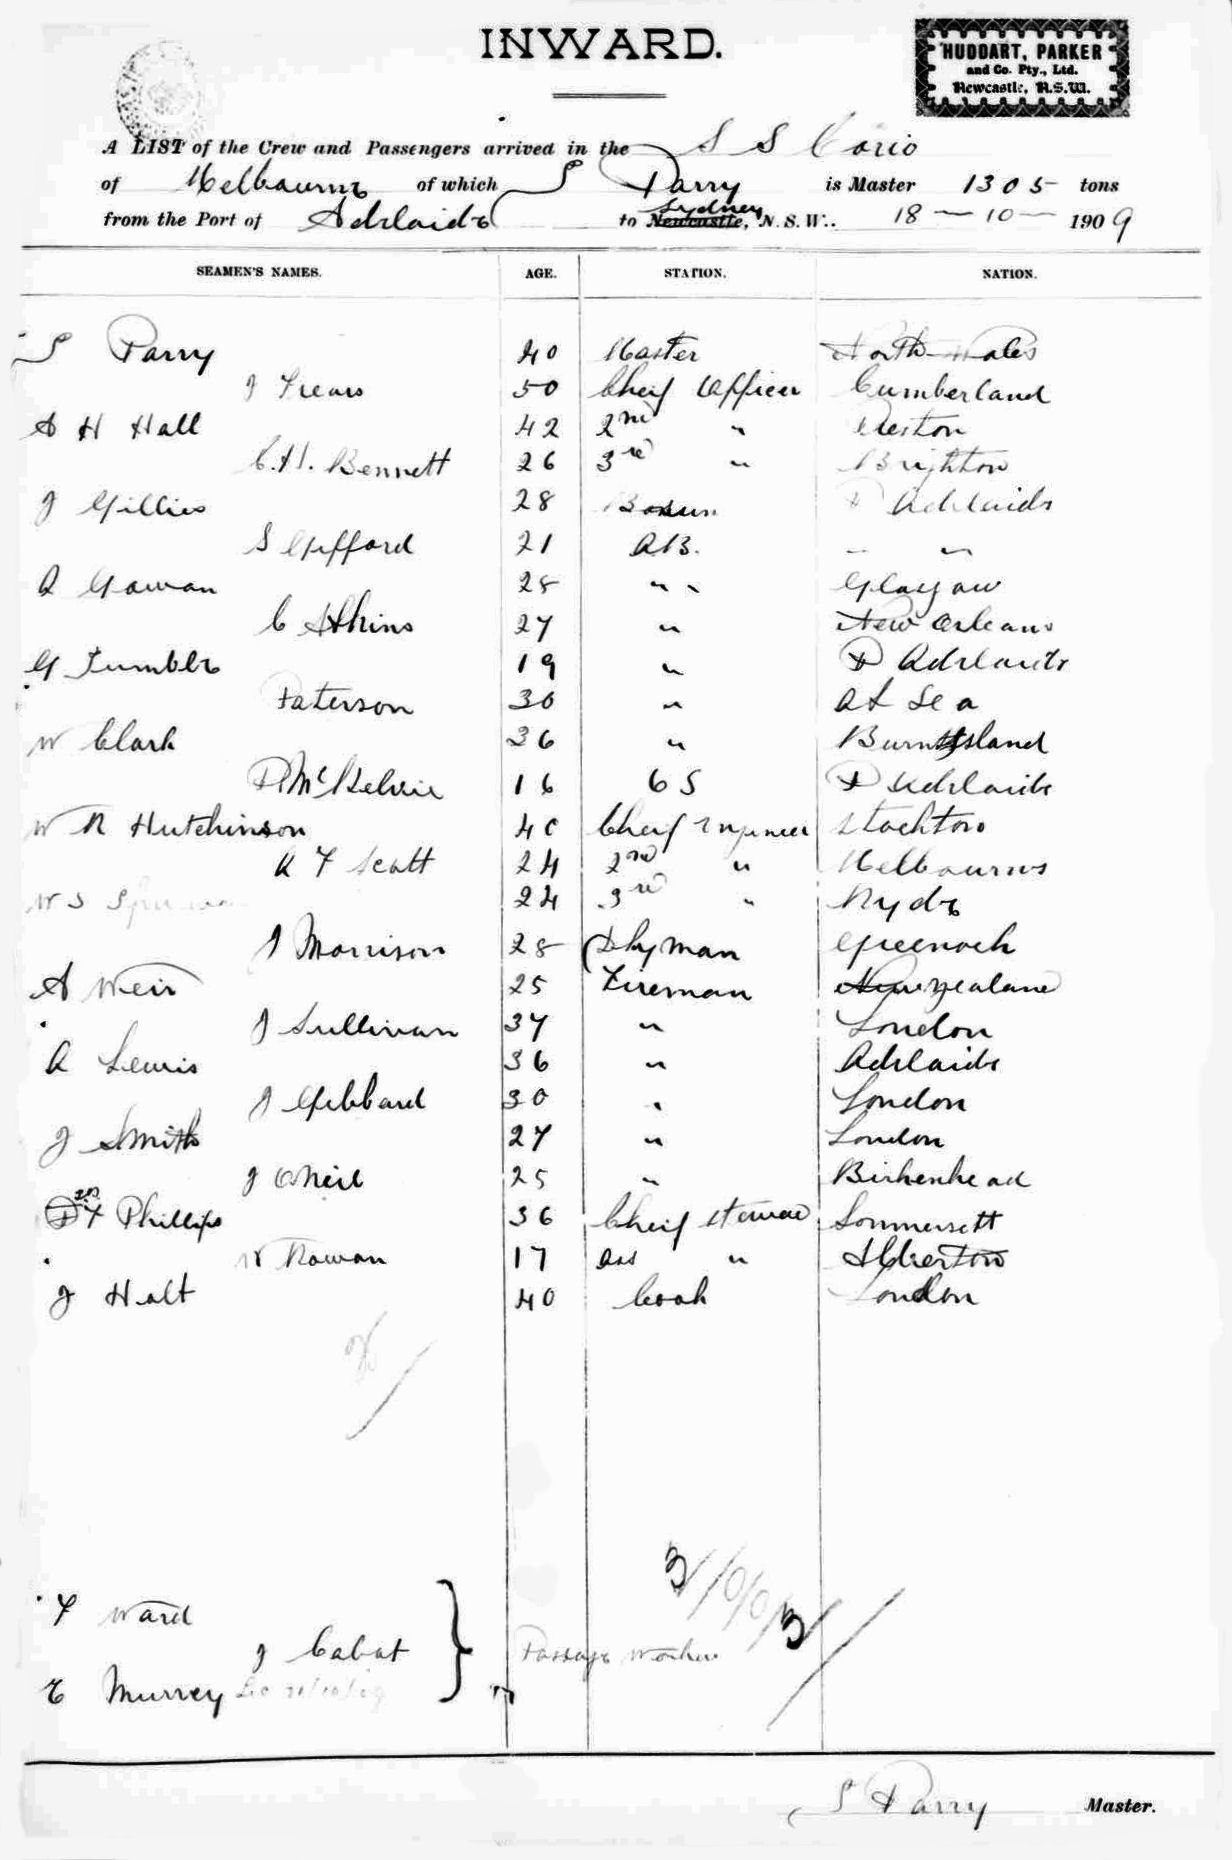 INWARD.
HUDDART, PARKER
and Co. Pty., Ltd.
Newcastle, N.S.W.
A LIST of the Crew and Passengers arrived in the S S Corio
of Melbourne of which S Parry is Master 1305 tons
from the Port of Adelaide to Newcastle, Sydney N. S. W.. 18 - 10 - 1909
SEAMEN'S NAMES. AGE. STATION. NATION.
S Parry 40 Master North Wales
J Frears 50 Cheif Officer Cumberland
A H Hall 42 2nd " Preston
C.H. Bennett 26 3rd " Brighton
J Gillies 28 Bosun P Adelaide
S Gifford 21 A.B. " "
A Gowan 28 " " Glasgow
C Atkins 27 " New Orleans
G Tumble 19 " P Adelaide
Paterson 30 " At Sea
W Clark 36 " Burntisland
D McKelvie 16 O S P Adelaide
W R Hutchinson 40 Cheif Engineer Stockton
A F Scott 24 2nd " Melbourne
W S 24 3rd " Ryde
J Morrison 28 Dkyman Greenock
A Weir 25 Fireman New Zealand
J Sullivan 37 " London
A Lewis 36 " Adelaide
J Gibbard 30 " London
J Smith 27 " London
J ONeil 25 " Birkenhead
F Phillips 36 Cheif Steward Sommersett
W Rowan 17 Ass " Alberton
J Holt 40 Cook London
F Ward
J Cabot Passage Workers
E Murrey
S Parry Master.